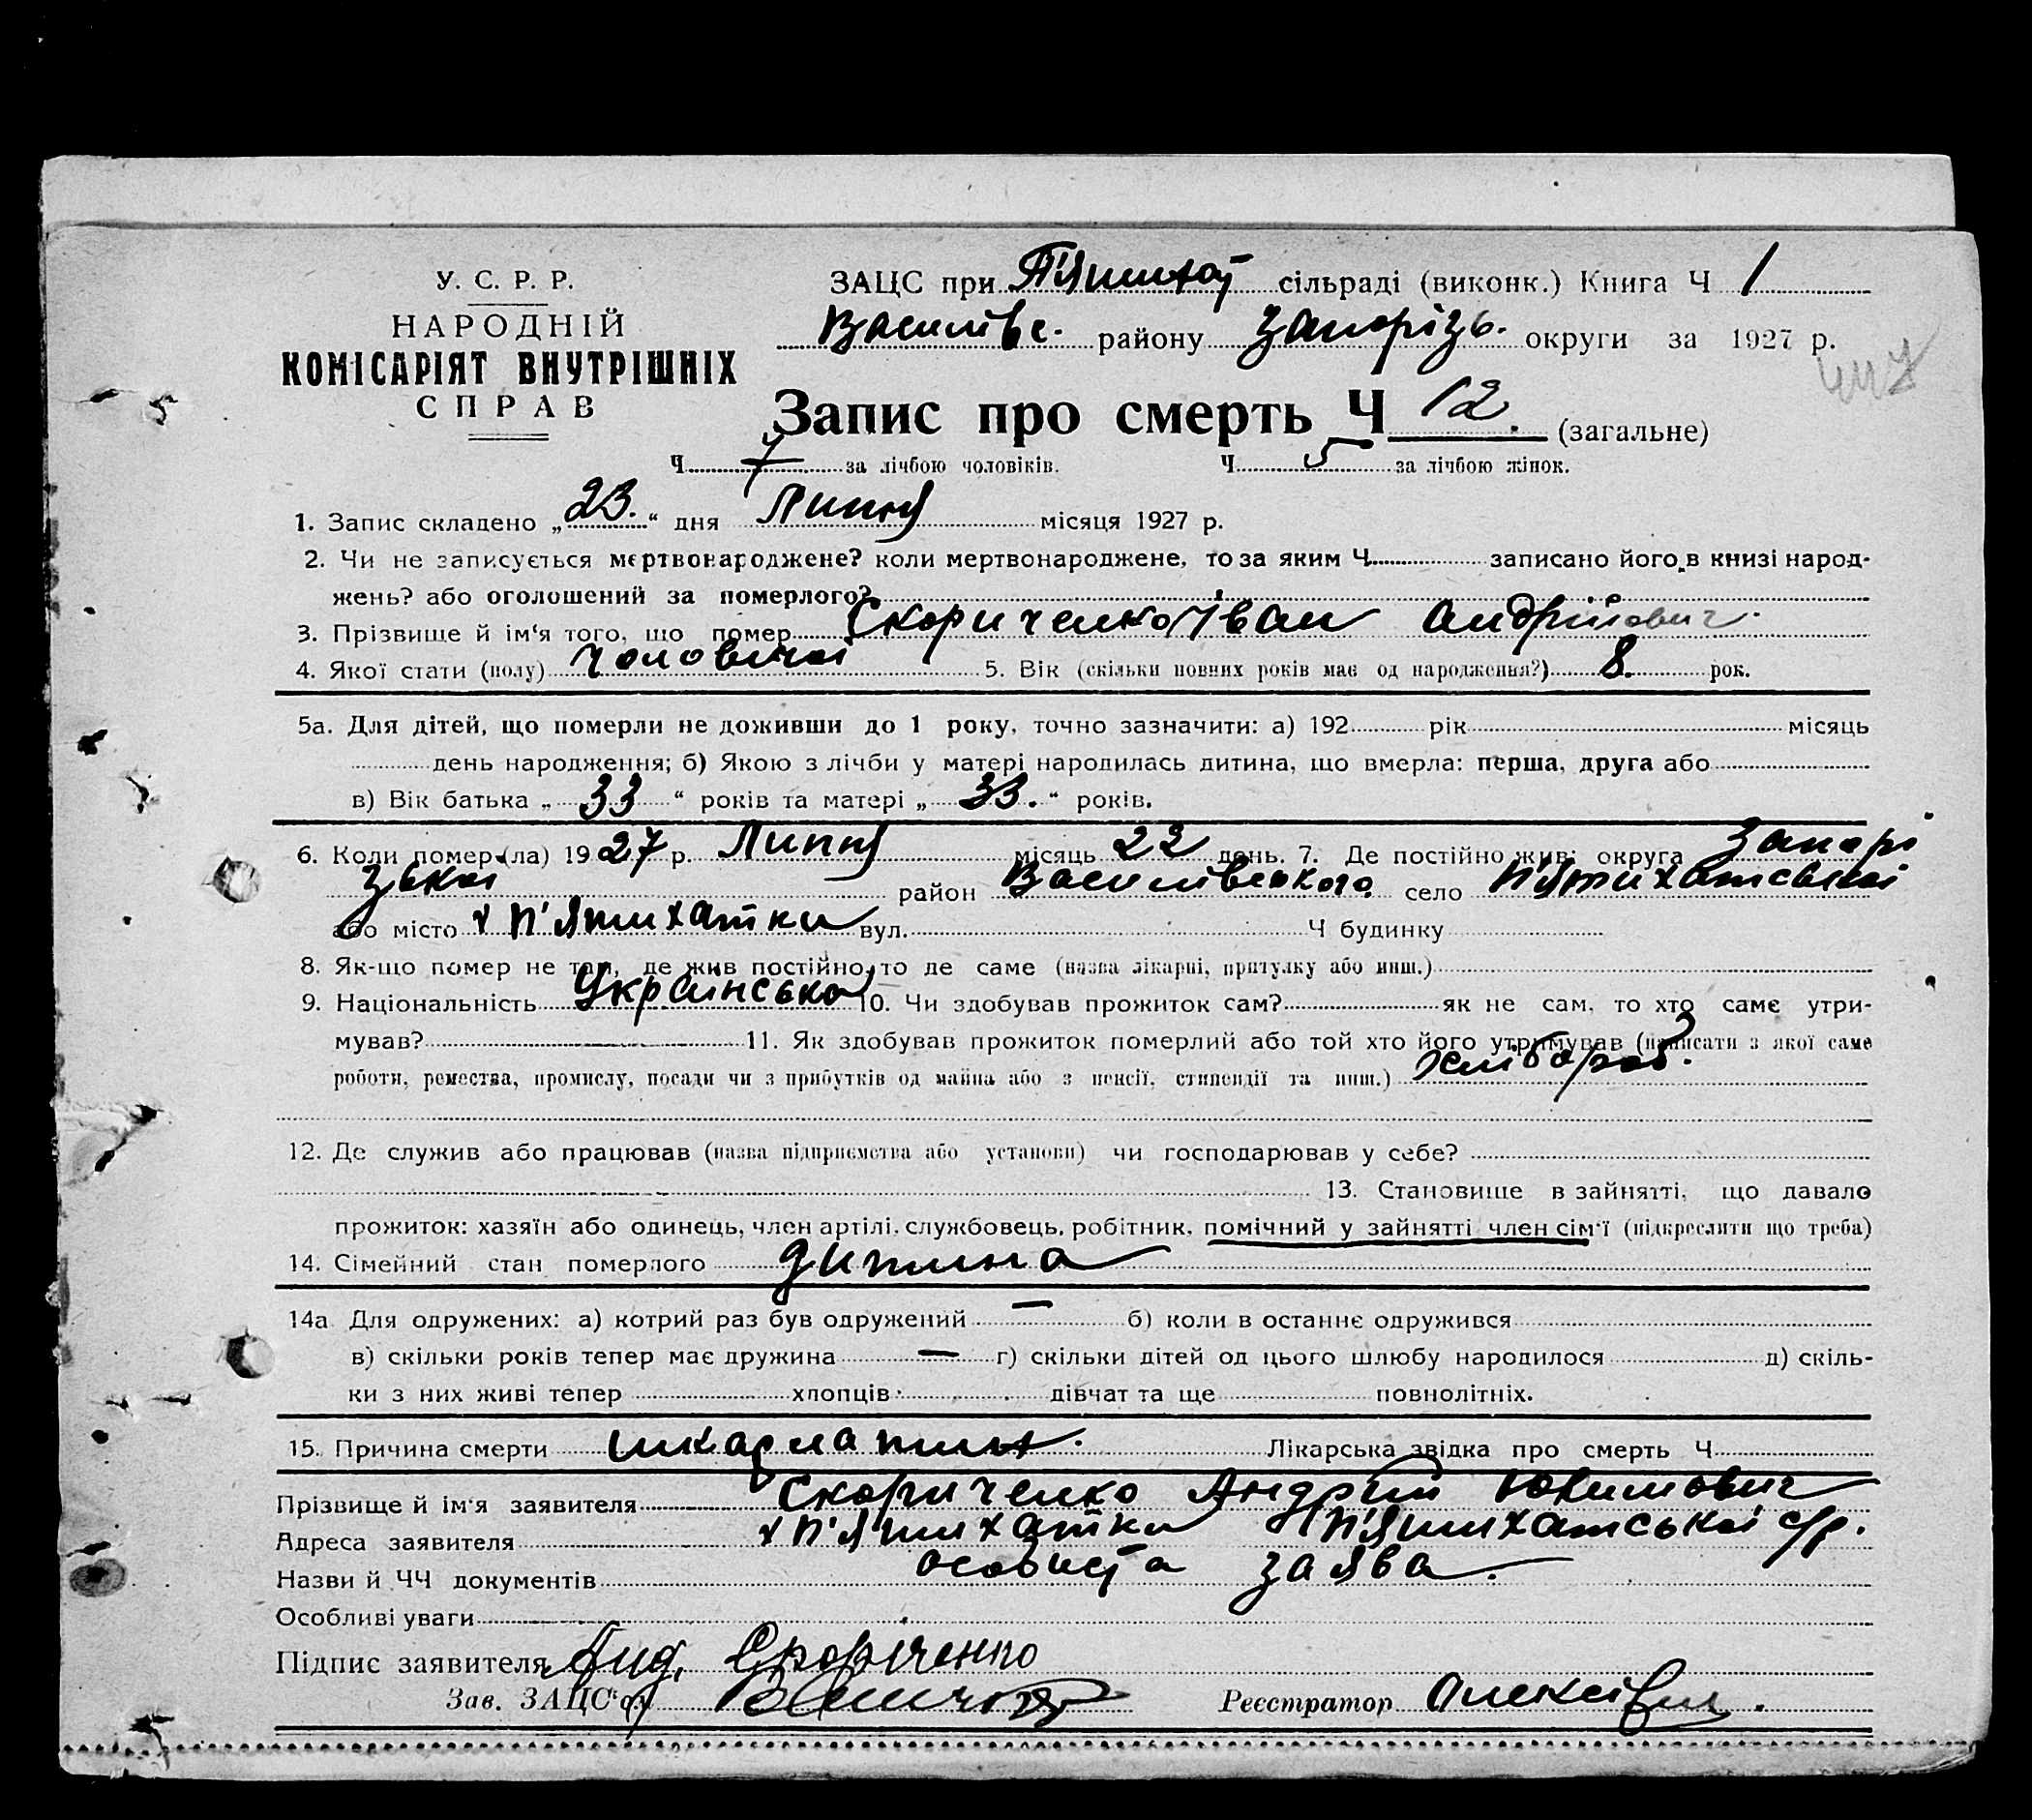 У. С. Р. Р.
НАРОДНІЙ
КОМІСАРІЯТ ВНУТРІШНІХ
СПРАВ
ЗАЦС при П'ятихат сільраді (виконк.) Книга Ч 1
Василівс. району Запорізь. округи за 1927 р.
Запис про смерть Ч 12. (загальне)
Ч 7 за лічбою чоловіків. Ч 5 за лічбою жінок.
1. Запис складено „23.“ дня Липня місяця 1927 р.
2. Чи не записується мертвонароджене? коли мертвонароджене, то за яким Ч записано його в книзі народ-
жень? або оголошений за померлого?
3. Прізвище й ім'я того, що помер Скориченко Іван Андрійович.
4. Якої стати (полу) чоловічої 5. Вік (скільки повних років має од народження?) 8. рок.
5а. Для дітей, що померли не доживши до 1 року, точно зазначити: а) 192 рік місяць
день народження; б) Якою з лічби у матері народилась дитина, що вмерла: перша, друга або
в) Вік батька „33“ років та матері „33.“ років.
6. Коли помер(ла) 1927 р. Липня місяць 22 день. 7. Де постійно жив: округа Запорі
зької район Василівського село П'ятихатської
або місто х П'ятихатки вул. Ч будинку
8. Як-що помер не там, де жив постійно, то де саме (назва лікарні, притулку або инш.)
9. Національність Українська 10. Чи здобував прожиток сам? як не сам, то хто саме утри-
мував? 11. Як здобував прожиток померлий або той хто його утримував (написати з якої саме
роботи, ремества, промислу, посади чи з прибутків од майна або з пенсії, стипендії та инш.) хлібороб.
12. Де служив або працював (назва підприємства або установи) чи господарював у себе?
13. Становище в зайнятті, що давало
прожиток: хазяїн або одинець, член артілі, службовець, робітник, помічний у зайнятті член сім'ї (підкреслити що треба)
14. Сімейний стан померлого дитина
14а Для одружених: а) котрий раз був одружений — б) коли в останнє одружився
в) скільки років тепер має дружина — г) скільки дітей од цього шлюбу народилося д) скіль-
ки з них живі тепер хлопців дівчат та ще повнолітніх.
15. Причина смерти шкарлатина. Лікарська звідка про смерть Ч
Прізвище й ім'я заявителя Скориченко Андрій Юхимович
Адреса заявителя х П'ятихатки П'ятихатської с/р.
Назви й ЧЧ документів особиста заява.
Особливі уваги
Підпис заявителя Анд. Скориченко
Зав. ЗАЦС'у Реєстратор